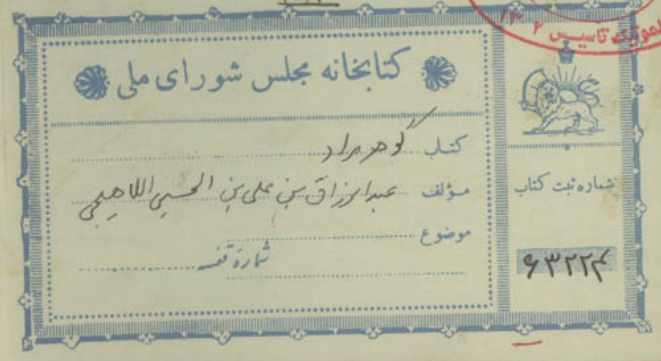 کتابخانه مجلس شورای ملی
کتاب گوهر مراد
مؤلف عبدالرزاق بن علی بن الحسین اللاهیجی
موضوع
شماره قفسه
شماره ثبت کتاب
۶۳۲۲۴
تاسیس